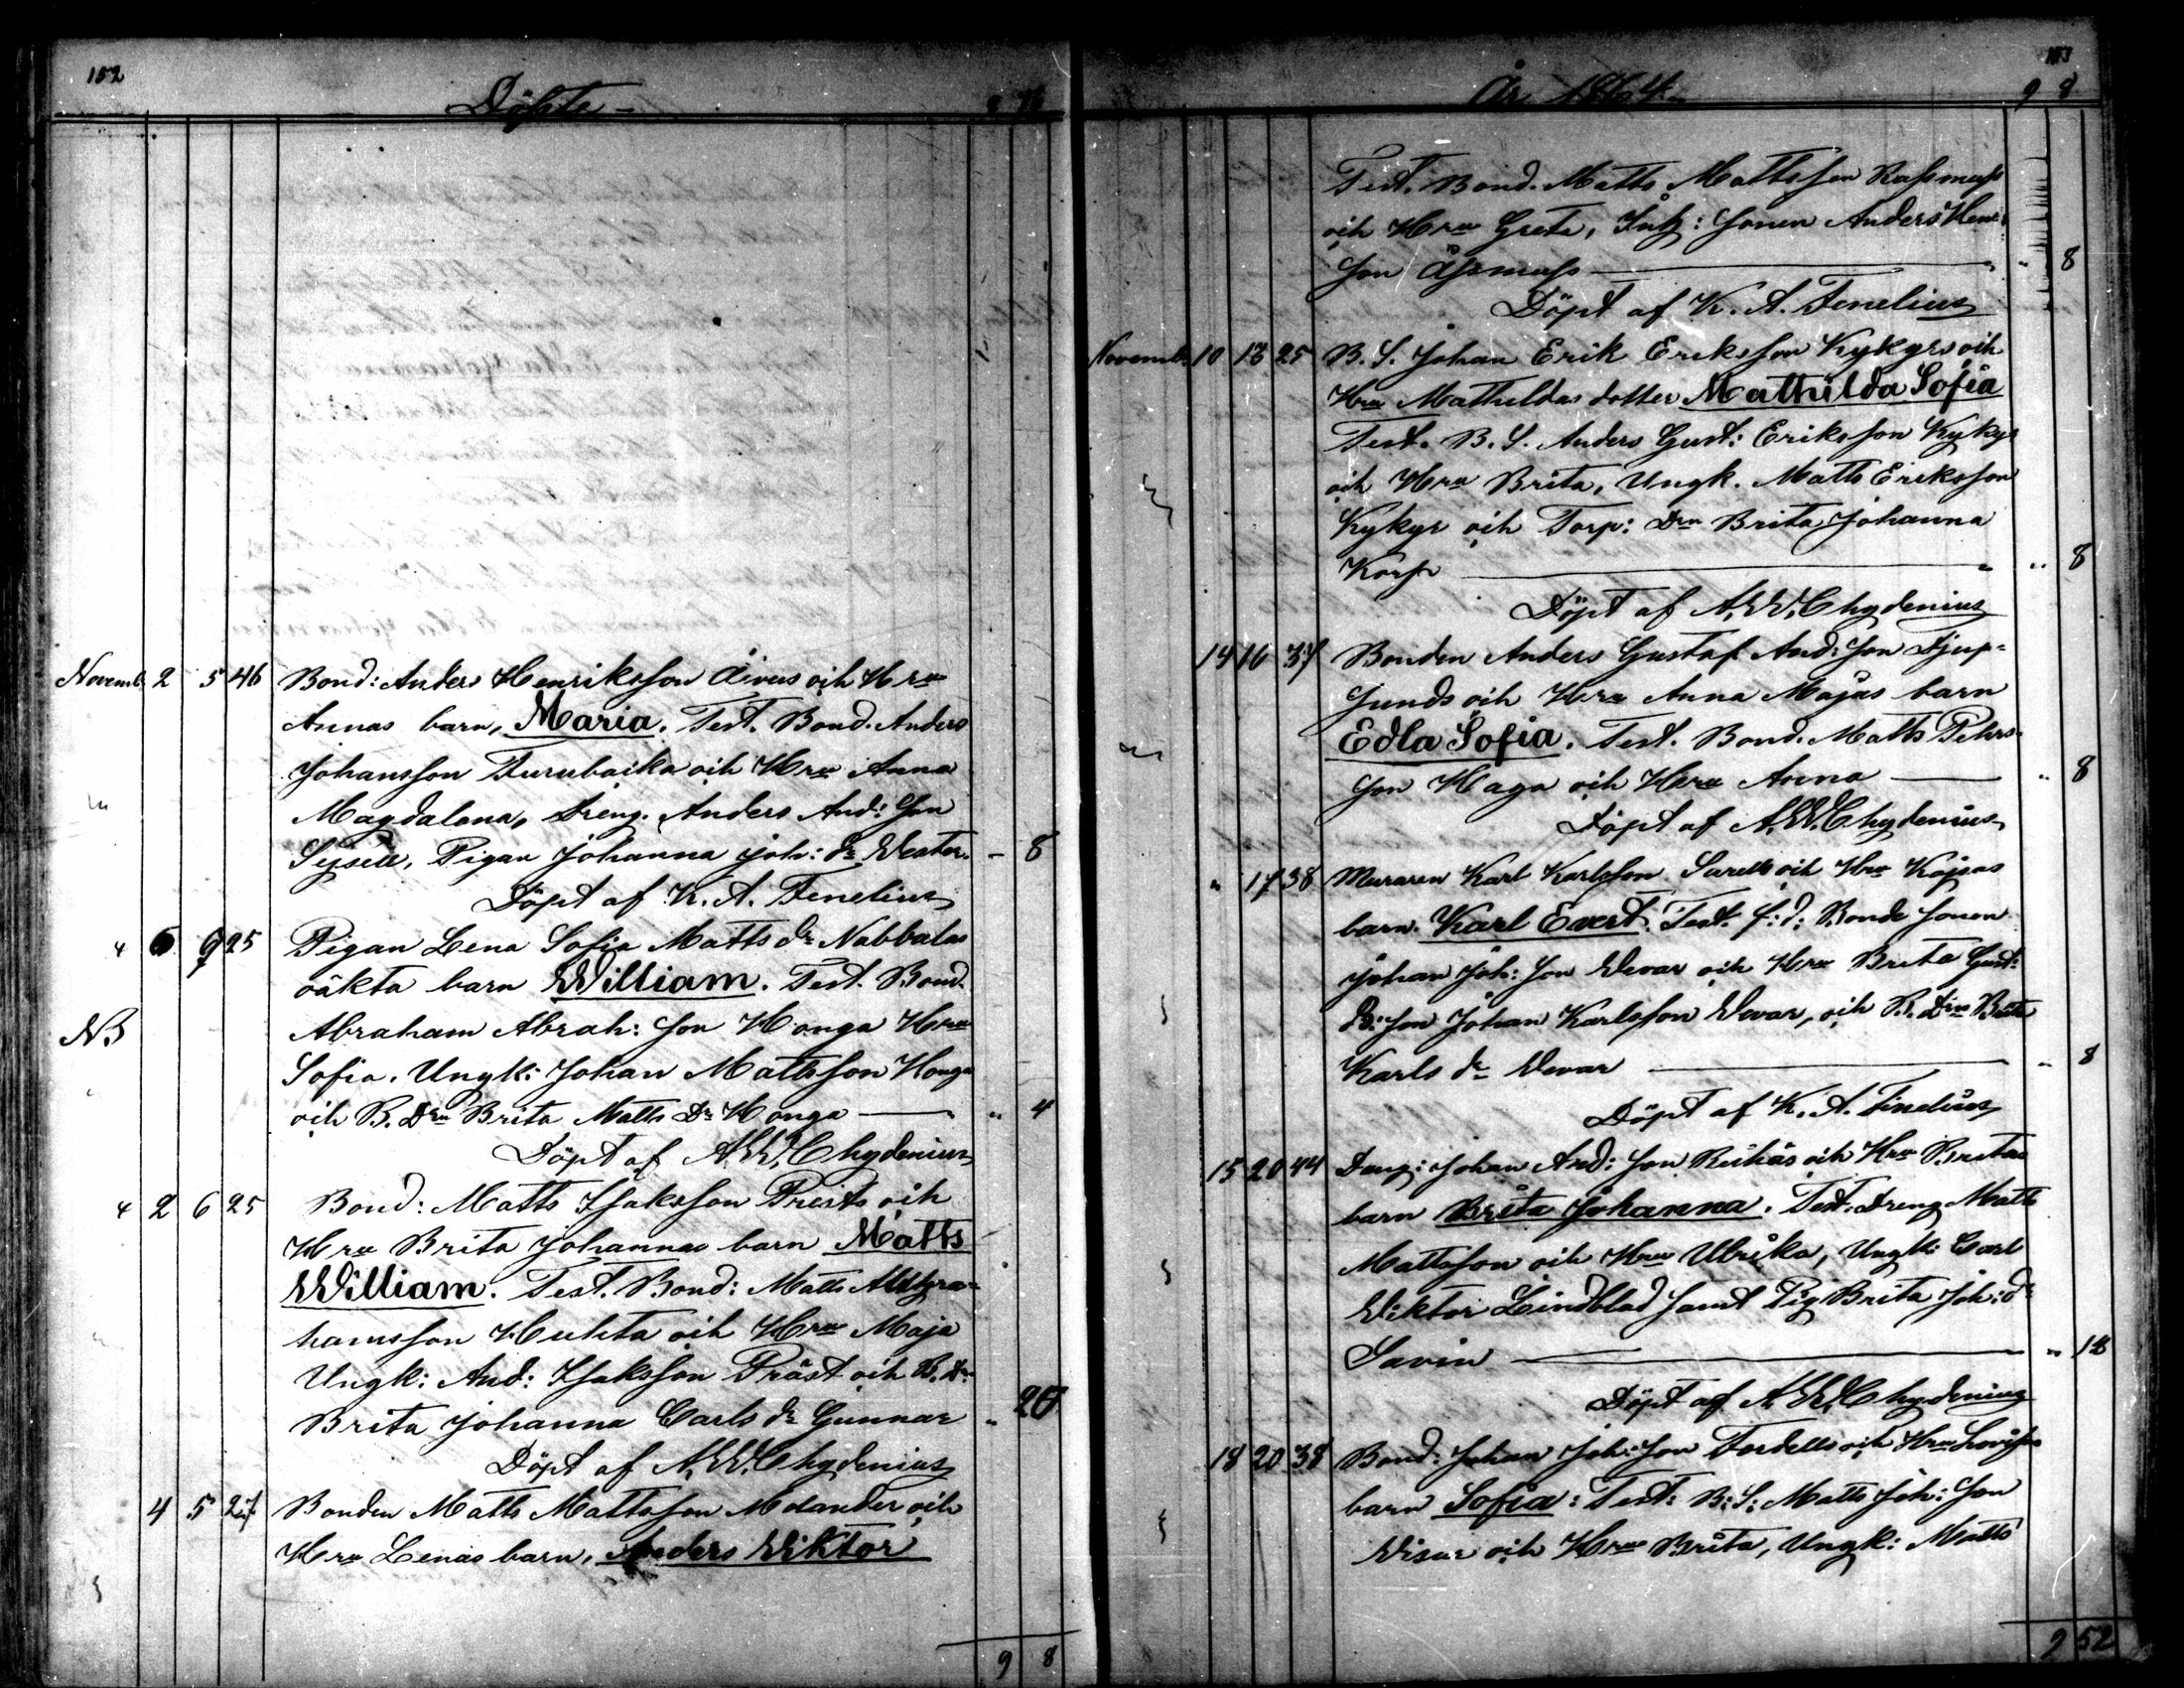 152
Döpte
Novemb. 2 5 46 Bond: Anders Henriksson Åivus och Hru
Annas barn, Maria. Test. Bond. Anders
Johansson Furubacka och Hru Anna
Magdalena, Dreng. Anders And: Son
Pigan Johanna Joh: dr Wester. – 8
Döpt af K. A. Fenelius
6 9 25 Pigan Lena Sofia Matts dr Nabbalas
oäkta barn William. Test. Bond.
NB Abraham Abrah: Son Honga Hru
Sofia. Ungk: Johan Mattsson Honga
och B. Drn Brita Matts Dr Honga — " 4
Döpt af A. W. Chydenius
2 6 25 Bond: Matts Isaksson Prests och
Hru Brita Johannas barn Matts
William. Test. Bond: Matts Abra-
hamsson Huhta och Hru Maja
Ungk: And: Isaksson Präst och B. Dr
Brita Johanna Carls dr Gunnar " 20
Döpt af A. W. Chydenius
4 5 27 Bonden Matts Mattsson Molander och
Hru Lenas barn, Anders Wiktor
9 8
År 1864.
153
9 8
Test. Bond. Matts Mattsson Rassmass
och Hru Greta, Ink: Sonen Anders Hen:
Son Åssmass — " 8
Döpt af K. A. Fenelius
Novemb. 10 13 25 B. S. Johan Erik Eriksson Kykyrs och
Hru Mathildas dotter Mathilda Sofia
Test. B. S. Anders Gust: Eriksson Kykyr
och Hru Brita, Ungk. Matts Eriksson
Kykyr och Torp: Drn Brita Johanna
Korp — " 8
Döpt af A. W. Chydenius
14 16 37 Bonden Anders Gustaf And: Son Djup-
sunds och Hru Anna Majas barn
Edla Sofia. Test. Bond. Matts Pehrs-
Son Haga och Hru Anna — " 8
Döpt af A. W. Chydenius
" 17 38 Muraren Karl Karlsson och Hru Kajsas
barn. Karl Evert. Test. f: d: Bonde Sonen
Johan Joh: Son Wevar och Hru Brita Gust:
B: Son Johan Karlsson Wevar, och B. Drn Brita
Karls dr Wevar — " 8
Döpt af K. A. Finelius
15 20 44 Dreng: Johan And: Son och Hru Britas
barn Brita Johanna. Test. Dreng Matts
Mattsson och Hru Ulrika, Ungk: Carl
Wiktor Lindblad samt Pig Brita Joh: dr
Savin — " 12
Döpt af A. W. Chydenius
18 20 38 Bond: Johan Joh: Son Fordells och Hru Lovisas
barn Sofia: Test: B: S: Matts Joh: Son
Wisar och Hru Brita, Ungk: Matts
9 52